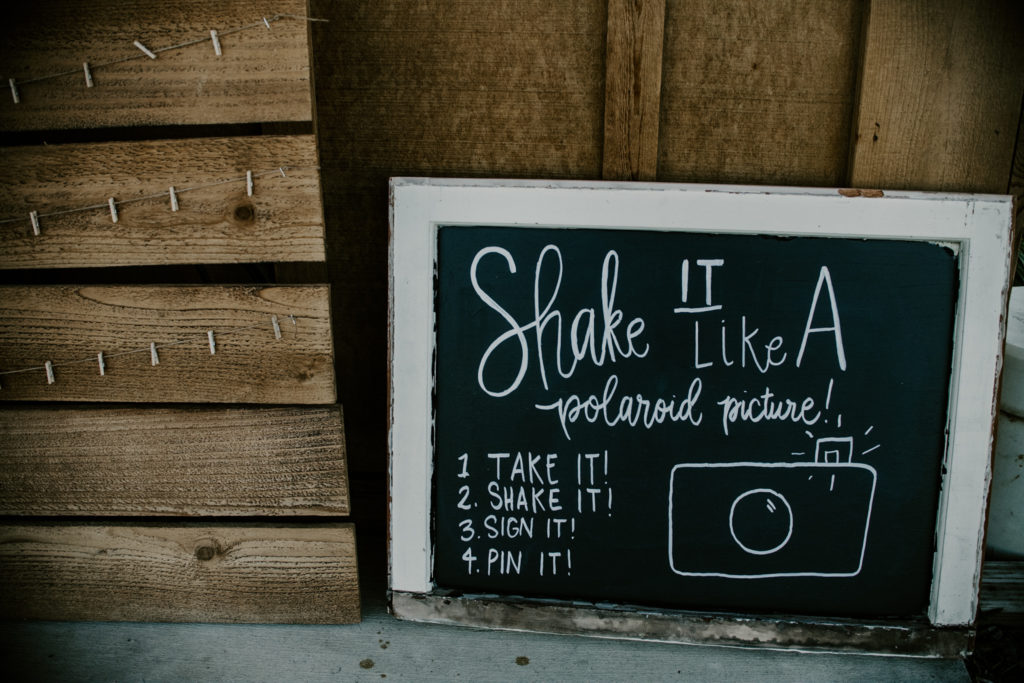 Shake IT Like A
polaroid picture!
1 TAKE IT!
2. SHAKE IT!
3. SIGN IT!
4. PIN IT!